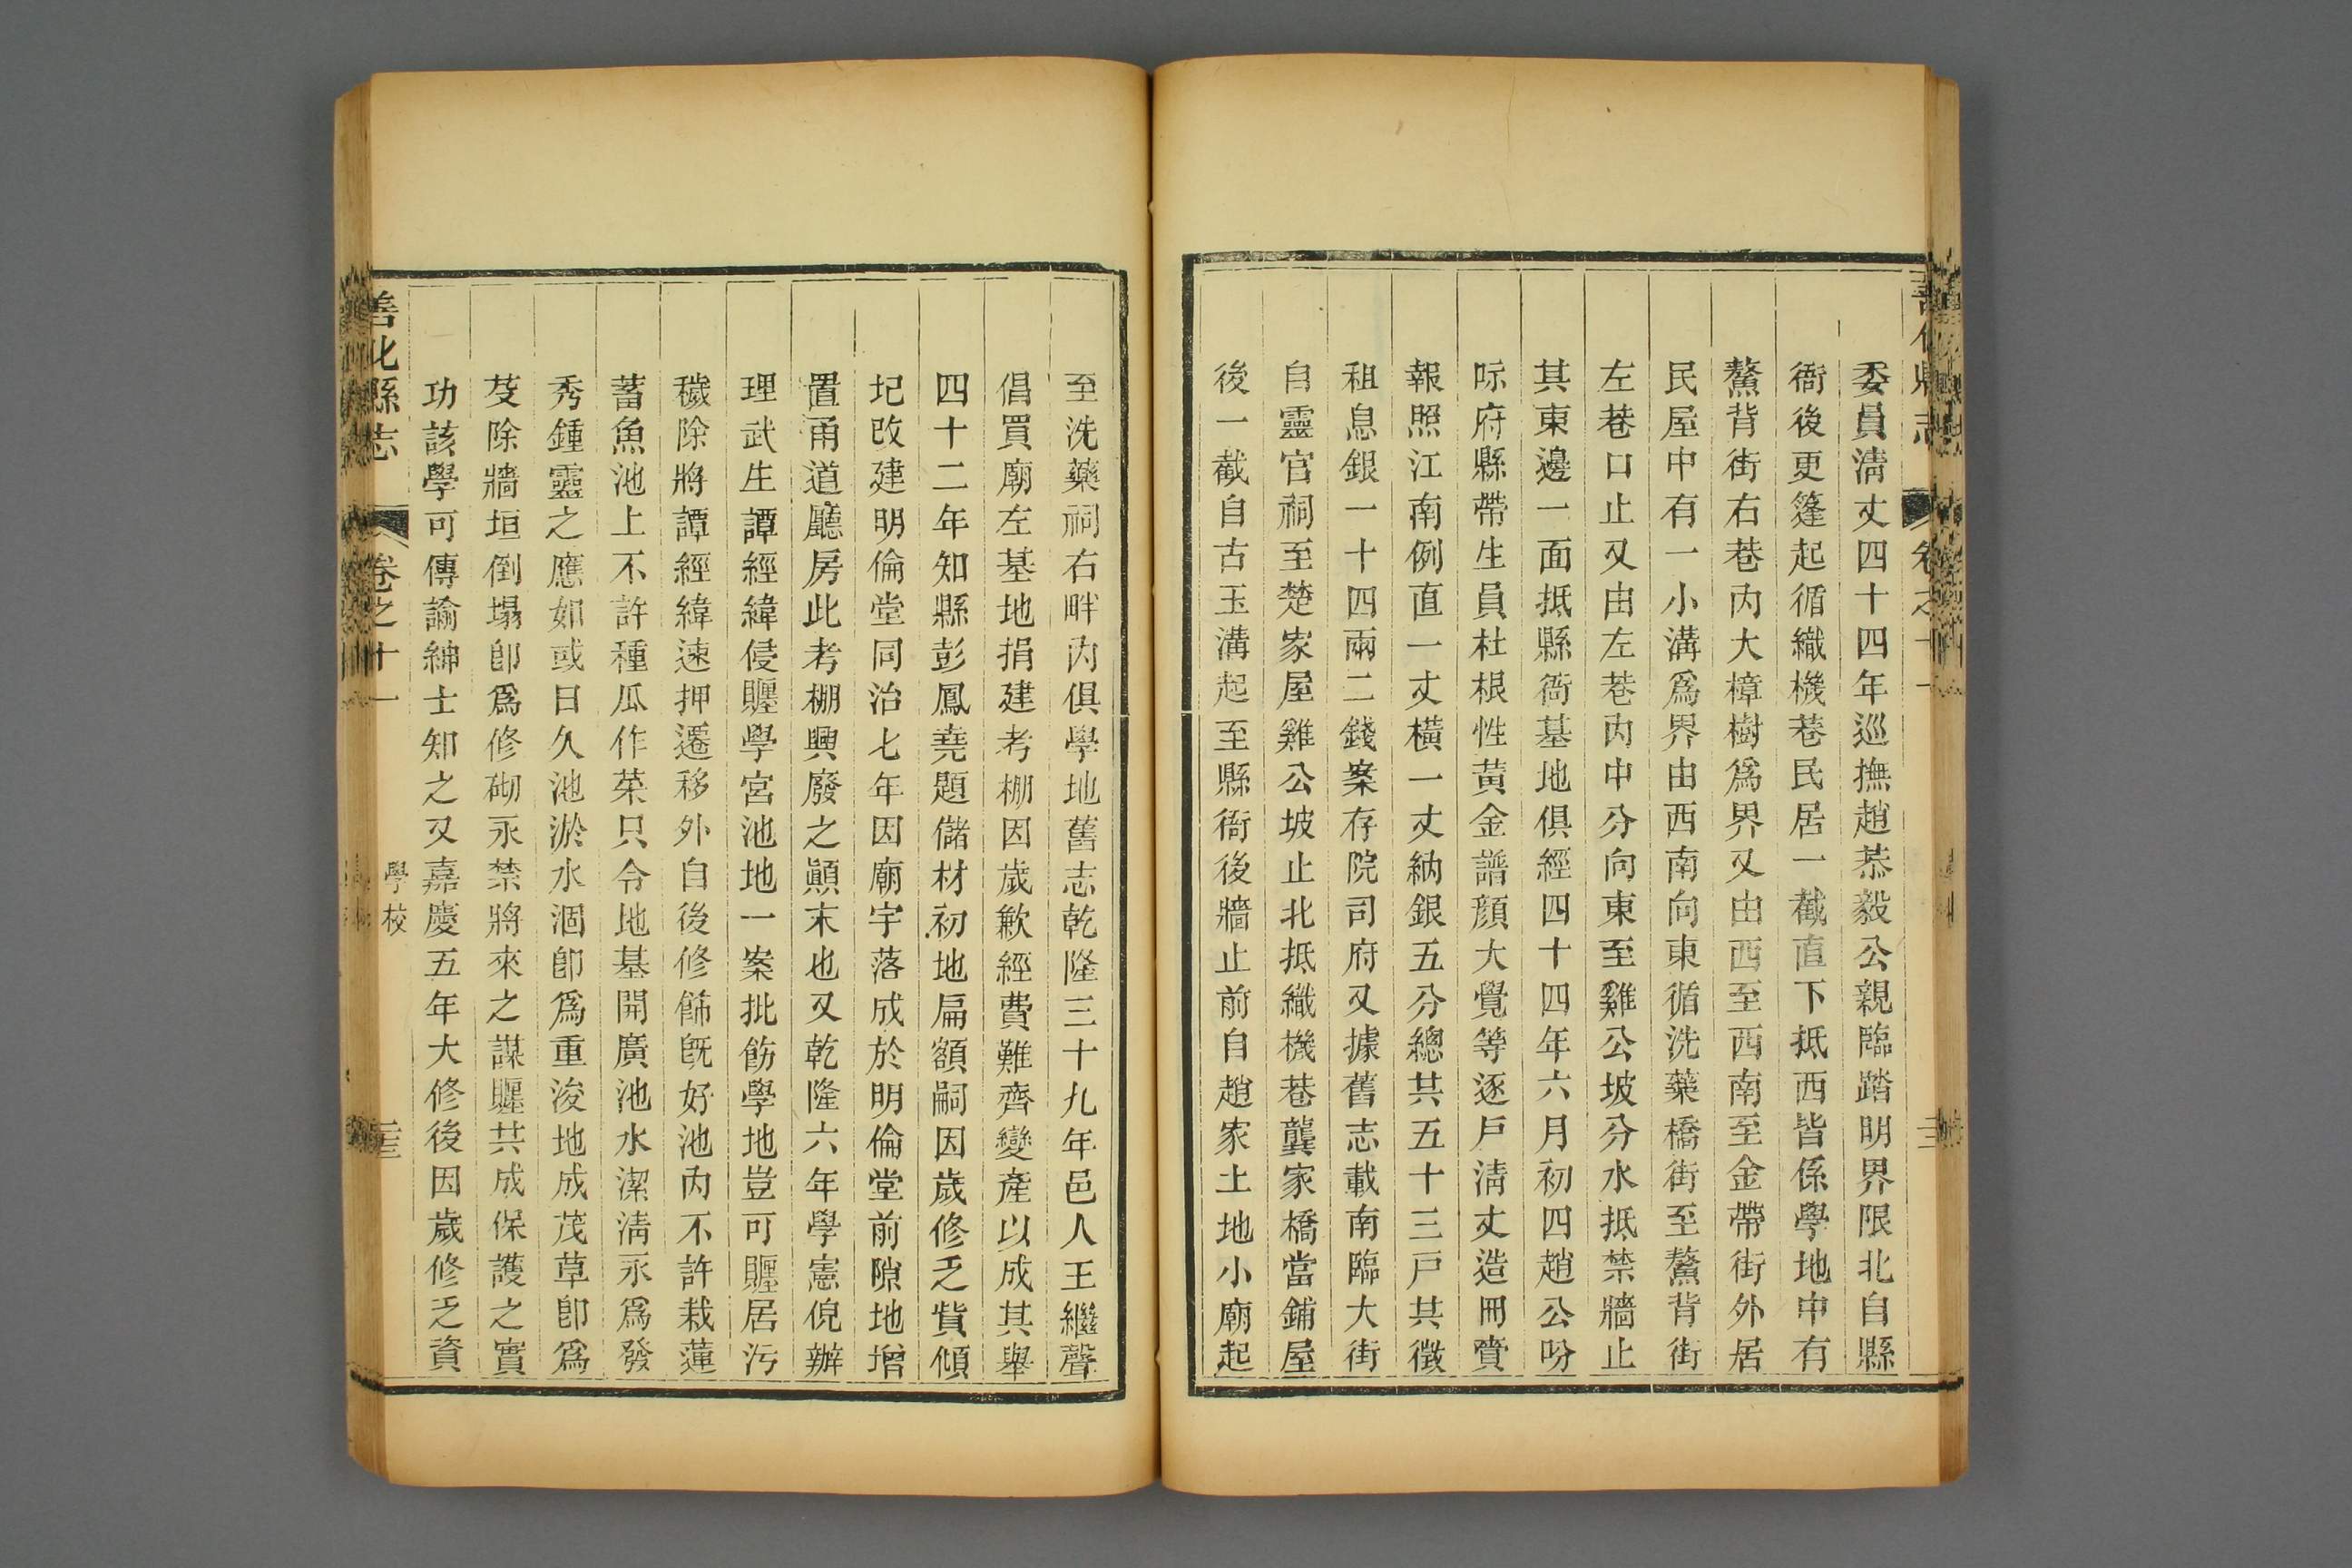 委員淸丈四十四年巡撫趙恭毅公親臨踏明界限北自縣
衙後更篷起循織機巷民居一截直下抵西皆係學地中有
鰲背街右巷內大樟樹爲界又由西至西南至金帶街外居
民屋中有一小溝爲界由西南向東循洗藥橋街至鰲背街
左巷口止又由左巷內中分向東至雞公坡分水抵禁牆止
其東邊一面抵縣衙基地俱經四十四年六月初四趙公吩
咏府縣帶生員杜根性黃金譜顔大覺等逐戶淸丈造冊賫
報照江南例直一丈橫一丈納銀五分總共五十三戸共徵
租息銀一十四兩二錢案存院司府又據舊志載南臨大街
自靈官祠至楚家屋雞公坡止北抵織機巷龔家橋當鋪屋
後一截自古玉溝起至縣衙後牆止前自趙家土地小廟起
至洗藥祠右畔內俱學地舊志乾隆三十九年邑人王繼聲
倡買廟左基地捐建考棚因歲歉經費難齊變產以成其舉
四十二年知縣彭鳳堯題儲材初地扁額嗣因歲修乏貲傾
圮改建明倫堂同治七年因廟宇落成於明倫堂前隙地增
置甬道廳房此考棚興廢之顚末也又乾隆六年學憲倪辦
理武生譚經緯侵贜學宮池地一案批飭學地豈可贜居污
穢除將譚經緯速押遷移外自後修飾旣好池內不許栽蓮
蓄魚池上不許種瓜作菜只令地基開廣池水潔淸永爲發
秀鍾靈之應如或日久池淤水涸卽爲重浚地成茂草卽爲
芟除牆垣倒塌卽爲修砌永禁將來之謀贜共成保護之實
功該學可傳諭紳士知之又嘉慶五年大修後因歲修乏資
善化縣志
卷之十一
學校